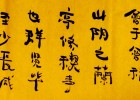 會于會稽
山陰之蘭
亭脩禊事
也群賢畢
至少長咸